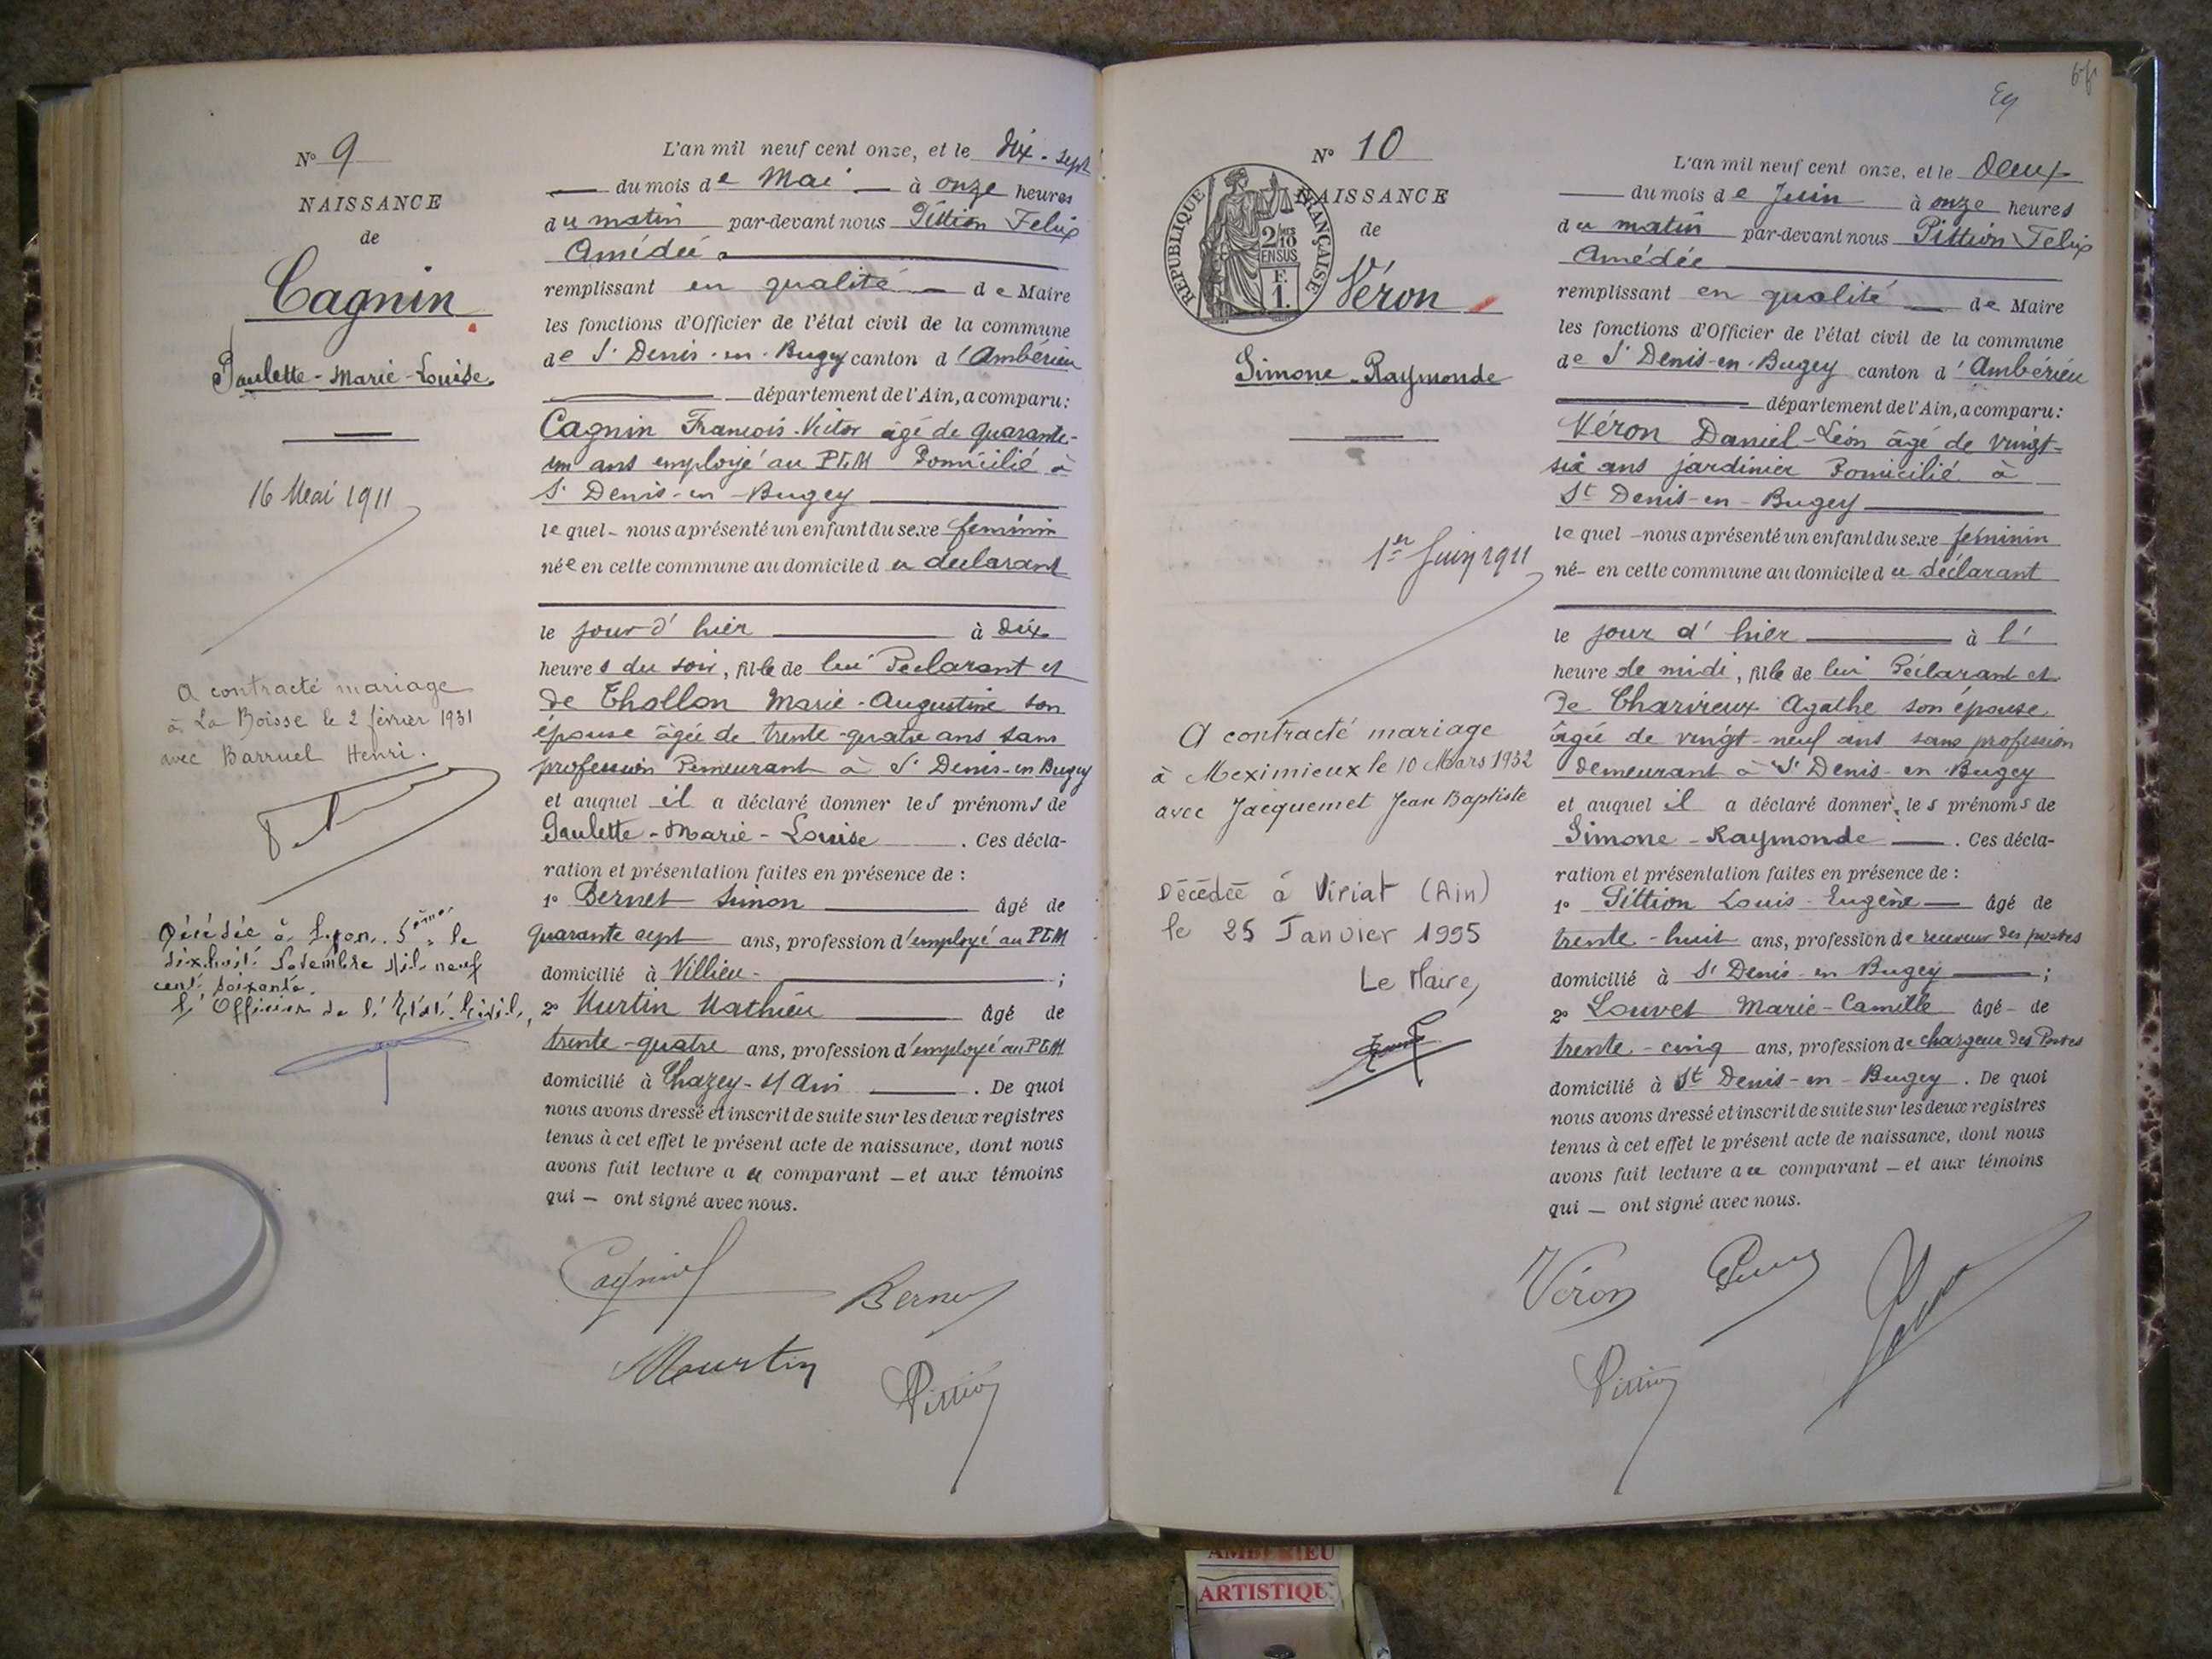 N° 9
NAISSANCE
de
Cagnin
Paulette-Marie-Louise.
16 Mai 1911
A contracté mariage
à La Boisse le 2 février 1931
avec Barruel Henri.
Décédée à Lyon 5ème le
dix huit Novembre Mil neuf
cent soixante.
L'Officier de l'Etat Civil,
L'an mil neuf cent onze, et le dix-sept
du mois de Mai à onze heures
du matin par-devant nous Pittion Felix
Amédée
remplissant en qualité de Maire
les fonctions d'Officier de l'état civil de la commune
de St Denis-en-Bugey canton d'Ambérieu
département de l'Ain, a comparu:
Cagnin François-Victor âgé de quarante-
un ans employé au PLM Domicilié à
St Denis-en-Bugey
lequel nous a présenté un enfant du sexe féminin
née en cette commune au domicile du déclarant
le jour d'hier à dix
heures du soir, fille de lui Déclarant et
de Thollon Marie-Augustine son
épouse âgée de trente-quatre ans sans
profession Demeurant à St Denis-en Bugey
et auquel il a déclaré donner les prénoms de
Paulette-Marie-Louise. Ces décla-
ration et présentation faites en présence de :
1° Bernet Simon âgé de
quarante sept ans, profession d'employé au PLM
domicilié à Villieu ;
2° Murtin Mathieu âgé de
trente-quatre ans, profession d'employé au PLM
domicilié à Chazey-s/Ain. De quoi
nous avons dressé et inscrit de suite sur les deux registres
tenus à cet effet le présent acte de naissance, dont nous
avons fait lecture au comparant et aux témoins
qui ont signé avec nous.
Cagnin
Bernet
Mourtin
Pittion
64
N° 10
NAISSANCE
de
RÉPUBLIQUE FRANÇAISE
2/10
EN SUS
F.
1.
Véron
Simone-Raymonde
1er Juin 1911
A contracté mariage
à Meximieux le 10 Mars 1932
avec Jacquemet Jean Baptiste
Décédée à Viriat (Ain)
le 25 Janvier 1995
Le Maire,
L'an mil neuf cent onze, et le deux
du mois de Juin à onze heures
du matin par-devant nous Pittion Felix
Amédée
remplissant en qualité de Maire
les fonctions d'Officier de l'état civil de la commune
de St Denis-en-Bugey canton d'Ambérieu
département de l'Ain, a comparu:
Véron Daniel-Léon âgé de vingt-
six ans jardinier Domicilié à
St Denis-en-Bugey
lequel nous a présenté un enfant du sexe féminin
né en cette commune au domicile du déclarant
le jour d'hier à l'
heure de midi, fille de lui Déclarant et
De Charvieux Agathe son épouse
âgée de vingt-neuf ans sans profession
demeurant à St Denis-en-Bugey
et auquel il a déclaré donner les prénoms de
Simone-Raymonde. Ces décla-
ration et présentation faites en présence de :
1° Pittion Louis-Eugène âgé de
trente-huit ans, profession de receveur des postes
domicilié à St Denis-en Bugey ;
2° Louvet Marie-Camille âgé de
trente-cinq ans, profession de chargeur des Postes
domicilié à St Denis-en-Bugey. De quoi
nous avons dressé et inscrit de suite sur les deux registres
tenus à cet effet le présent acte de naissance, dont nous
avons fait lecture au comparant et aux témoins
qui ont signé avec nous.
Véron
Pittion
AMBÉRIEU
ARTISTIQU